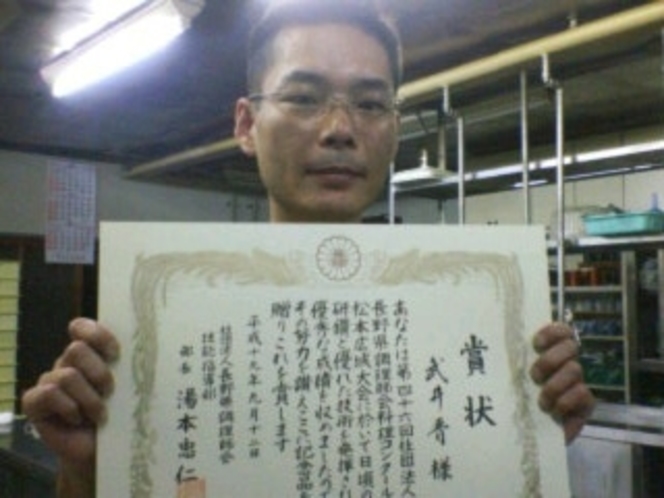 賞状
武井 様
あなたは第四十六回社団法人
長野県調理師会料理コンクール
松本広域大会に於いて日頃の
研鑽と優れた技術を発揮され
優秀な成績を収めましたので
その努力を讃えここに記念品を
贈りこれを賞します
平成十九年九月十二日
社団法人長野県調理師会
技能指導部
部長 湯本忠仁